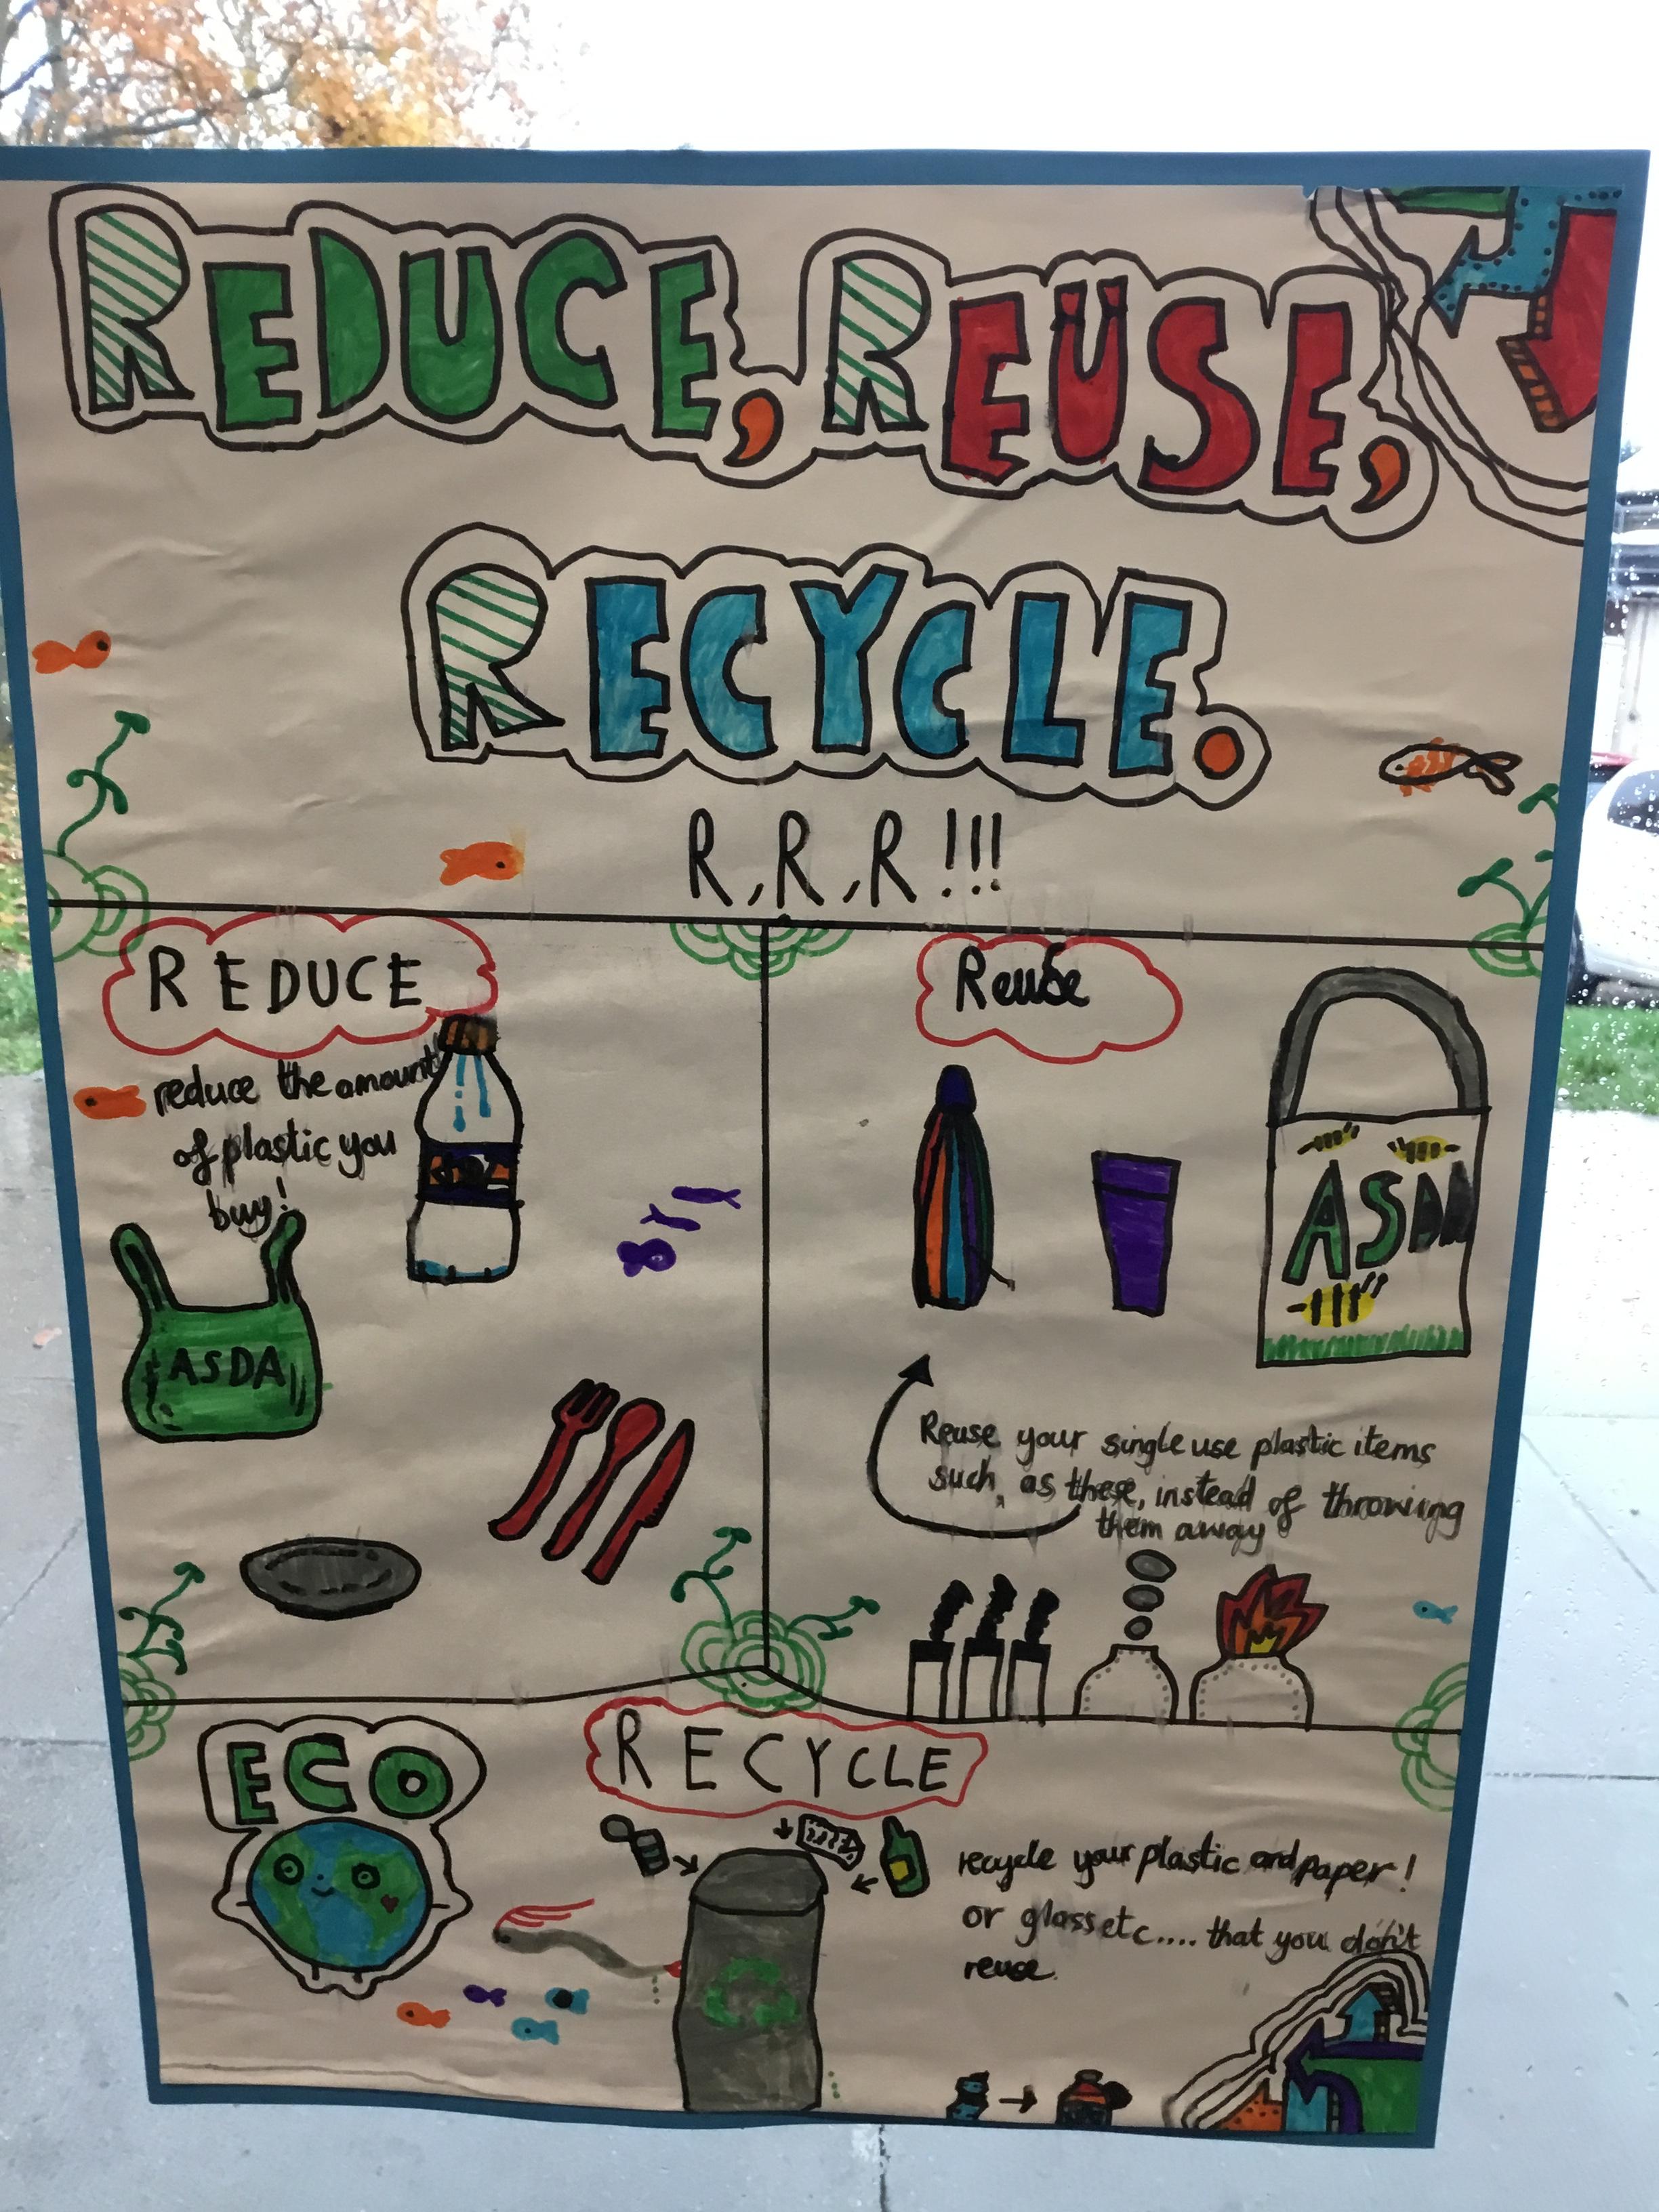 REDUCE, REUSE,
RECYCLE.
R,R,R!!!
REDUCE
reduce the amount
of plastic you
buy!
ASDA
Reuse
ASDA
Reuse your single use plastic items
such, as these, instead of throwing
them away
ECO
RECYCLE
recycle your plastic and paper!
or glass etc.... that you don't
reuse.